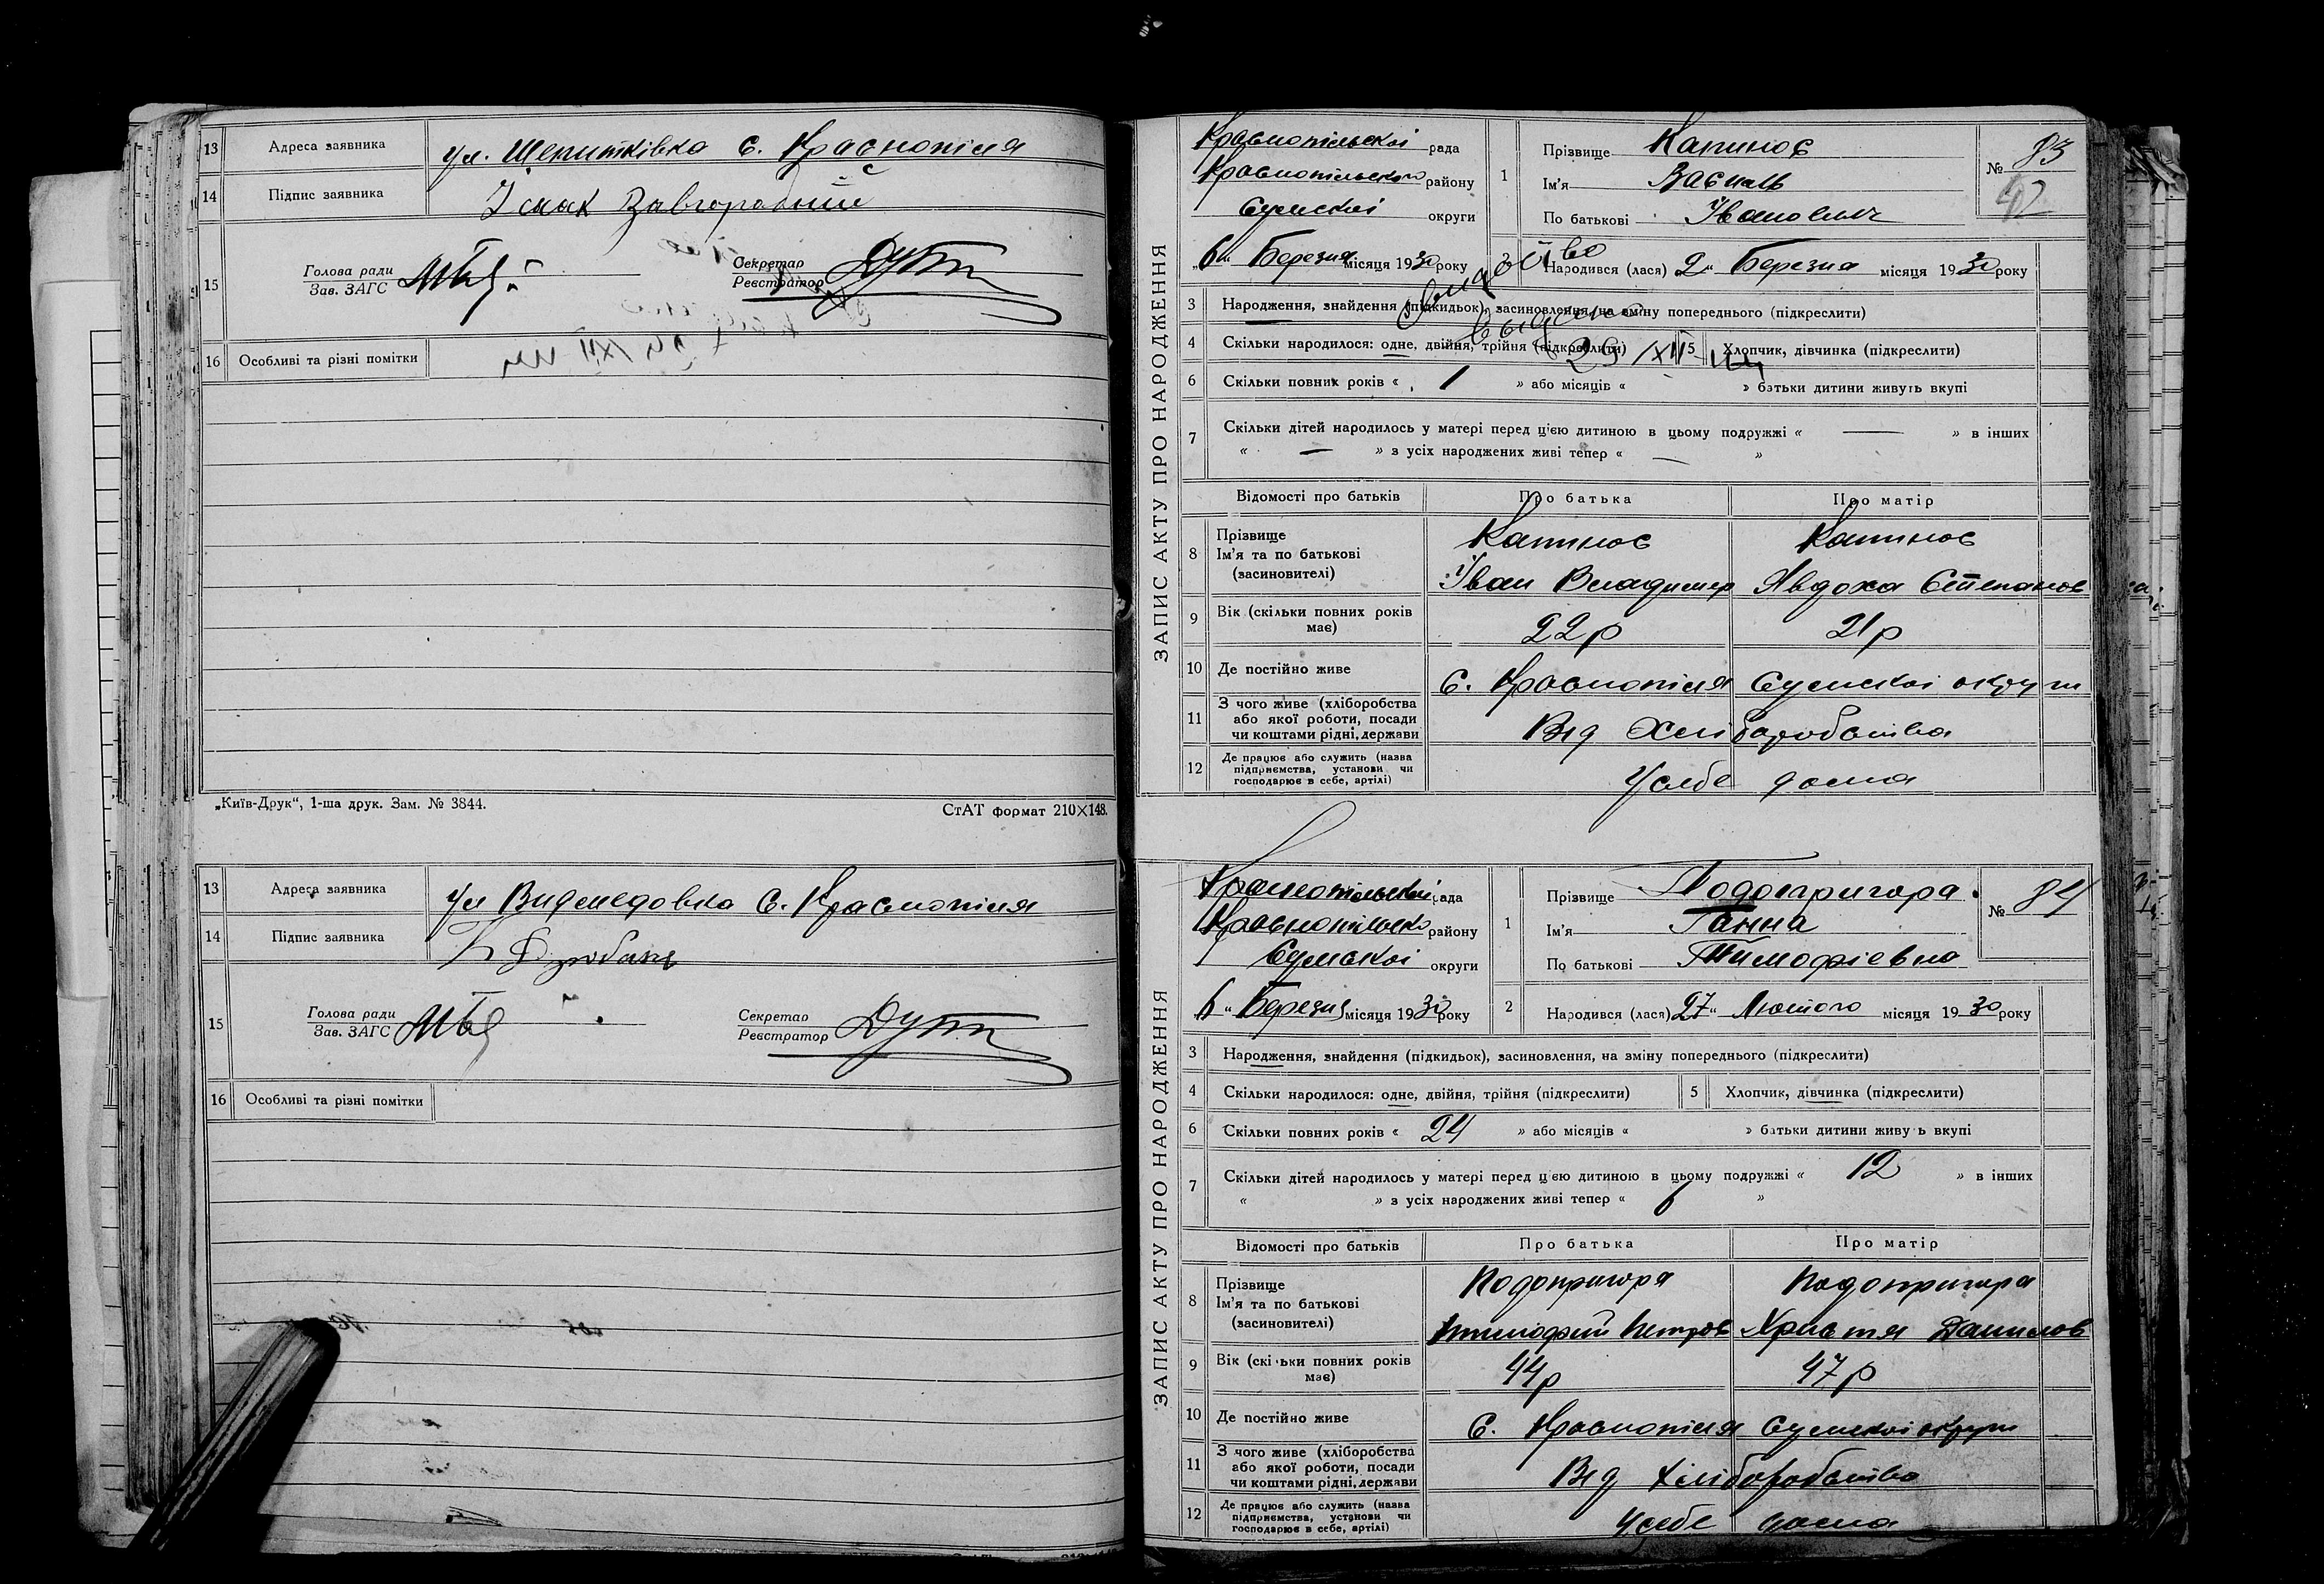 13 Адреса заявника ул. Шепитківка с. Краснопілля
14 Підпис заявника Ісаак Завгородній
15 Голова ради
Зав. ЗАГС
Секретар
Реєстратор
16 Особливі та різні помітки
„Київ-Друк“, 1-ша друк. Зам. № 3844.
СтАТ формат 210×148.
13 Адреса заявника ул с. Краснопілля
14 Підпис заявника
15 Голова ради
Зав. ЗАГС
Секретар
Реєстратор
16 Особливі та різні помітки
ЗАПИС АКТУ ПРО НАРОДЖЕННЯ
Краснопільскої рада
Краснопільского району
Сумскої округи
„6“ Березня місяця 1930 року
1 Прізвище Капинос
Ім'я Василь
По батькові Іванович
№ 83
42
2 Народився (лася) 2„ Березня місяця 1930 року
3 Народження, знайдення (підкидьок), засиновлення, на зміну попереднього (підкреслити)
4 Скільки народилося: одне, двійня, трійня (підкреслити) 5 Хлопчик, дівчинка (підкреслити)
6 Скільки повних років « 1 » або місяців « » батьки дитини живуть вкупі
7 Скільки дітей народилось у матері перед цією дитиною в цьому подружжі « — » в інших
« — » з усіх народжених живі тепер « — »
Відомості про батьків Про батька Про матір
8 Прізвище
Ім'я та по батькові
(засиновителі)
Капинос Капинос
Іван Владимир Явдоха Степанов
9 Вік (скільки повних років має) 22 р 21 р
10 Де постійно живе с. Краснопілля Сумскої округи
11 З чого живе (хліборобства
або якої роботи, посади
чи коштами рідні, держави
Від Хліборобства
12 Де працює або служить (назва
підприємства, установи чи
господарює в себе, артілі)
У себе дома
ЗАПИС АКТУ ПРО НАРОДЖЕННЯ
Краснопільскої рада
Краснопільско району
Сумської округи
6 „ Березня місяця 1930 року
1 Прізвище Подопригора
Ім'я Ганна
По батькові Тимофієвна
№ 84
2 Народився (лася) 27„ Лютого місяця 1930 року
3 Народження, знайдення (підкидьок), засиновлення, на зміну попереднього (підкреслити)
4 Скільки народилося: одне, двійня, трійня (підкреслити) 5 Хлопчик, дівчинка (підкреслити)
6 Скільки повних років « 24 » або місяців « » батьки дитини живуть вкупі
7 Скільки дітей народилось у матері перед цією дитиною в цьому подружжі « 12 » в інших
« » з усіх народжених живі тепер « 6 »
Відомості про батьків Про батька Про матір
8 Прізвище
Ім'я та по батькові
(засиновителі)
Подопригора Подопригора
Петров Христя Данилов
9 Вік (скільки повних років має) 44 р 47 р
10 Де постійно живе с. Краснопілля Сумскої округи
11 З чого живе (хліборобства
або якої роботи, посади
чи коштами рідні, держави
Від Хліборобства
12 Де працює або служить (назва
підприємства, установи чи
господарює в себе, артілі)
У себе дома